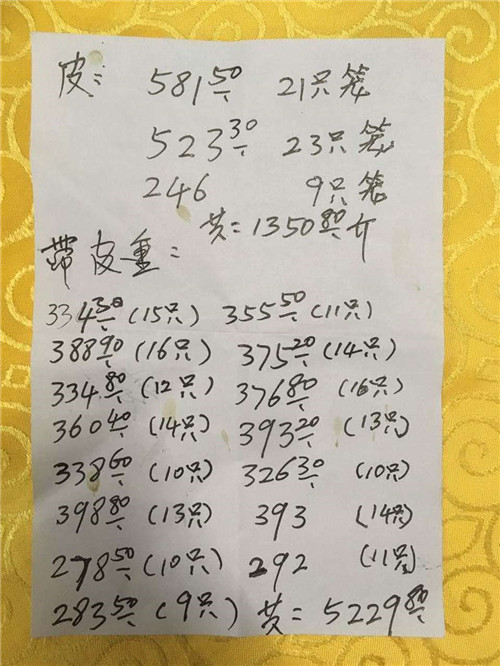 皮: 581⁵⁰ 21只笼
523³⁰ 23只笼
246 9只笼
共=1350⁸⁰斤
带皮重:
334³⁰(15只) 355⁵⁰(11只)
388⁹⁰(16只) 375²⁰(14只)
334⁸⁰(12只) 376⁸⁰(16只)
360⁴⁰(14只) 393²⁰(13只)
338⁶⁰(10只) 326³⁰(10只)
398⁸⁰(13只) 393(14只)
278⁵⁰(10只) 292(11只)
283⁵⁰(9只) 共=5229⁸⁰